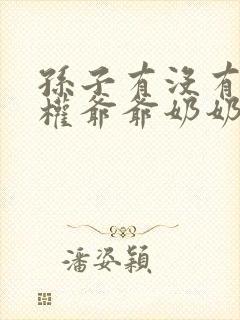 孫子有沒有
權爺爺奶奶
潘姿穎